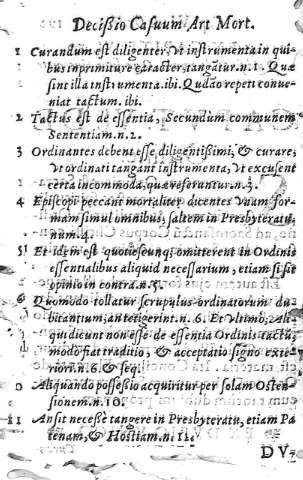 Decißio Casuum Art Mort.
1 Curandum est diligenter, vt instrumenta in qui-
bus inprimiture caracter, tangātur.n.1. Quæ
sint illa instrumenta.ibi. Qudāo repeti conue-
niat tactum.ibi.
2 Tactus est de essentia, Secundum communem
Sententiam.n.2.
3 Ordinantes debent esse diligentissimi, & curare,
vt ordinati tangant instrumenta, vt excusent
certa incommoda, quæ referuntur.n.3.
4 Episcopi peccant mortaliter dicentes vnam for-
mam simul omnibus, saltem in Presbyteratu
num.4.
5 Et idem est quotiescunq; omitterent in Ordinis
essentialibus aliquid necessarium, etiam si sit
opinio in contra.n.5.
6 Quomodo tollatur scrupulus ordinatorum du
bitantium, an tetigerint.n.6. Et vltimo, Ali-
qui dicunt non esse de essentia Ordinis tactū,
modo fiat traditio, & acceptatio signo exte-
riori.n.6. & seq.
0 Aliquando possessio acquiritur per solam Osten-
sionem.n.10.
11 An sit necesse tangere in Presbyteratu, etiam Pa
tenam, & Hostiam.n.11.
DV